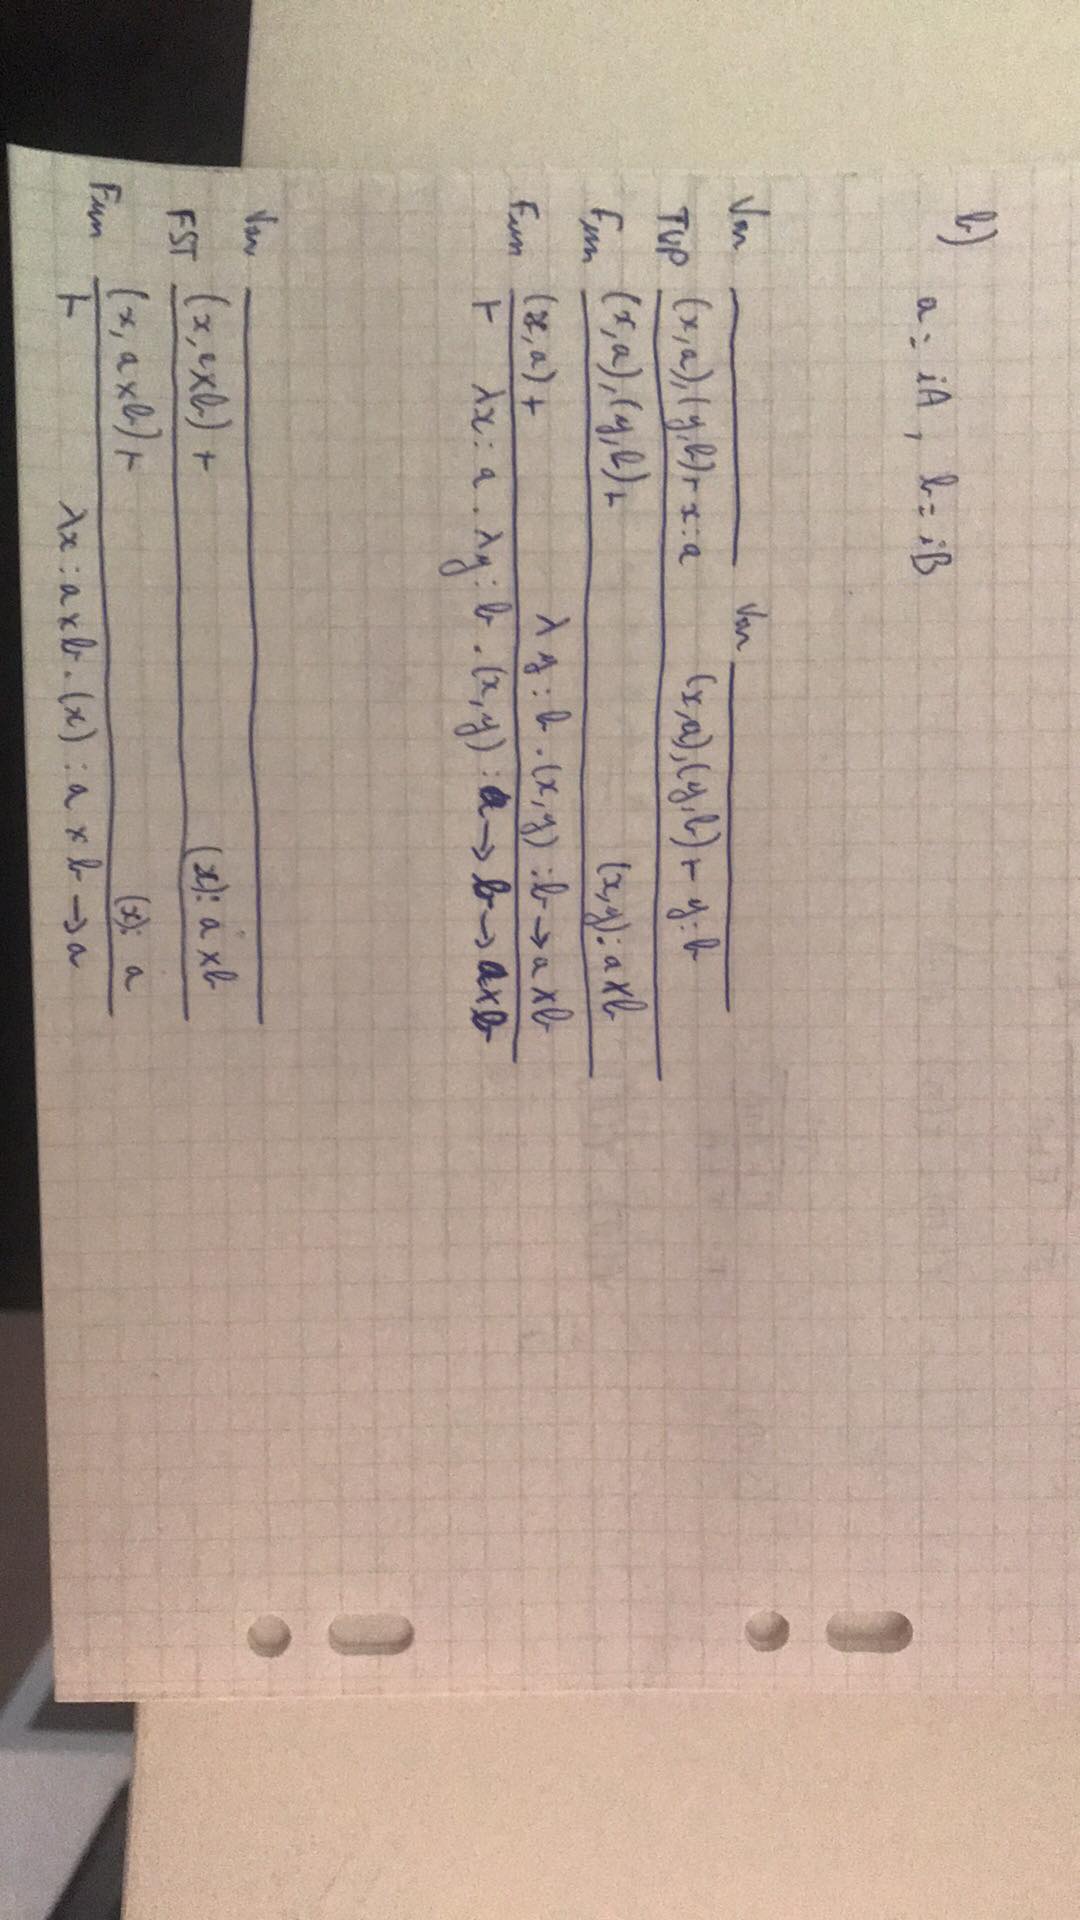 b)
a = iA , b = iB
Var Var
TUP (x,a),(y,b) ⊢ x : a (x,a),(y,b) ⊢ y : b
Fun (x,a),(y,b) ⊢ (x,y) : a × b
Fun (x,a) ⊢ λ y : b . (x,y) : b → a × b
⊢ λx : a . λy : b . (x,y) : a → b → a × b
Var
FST (x, a×b) ⊢ (x) : a × b
Fun (x, a×b) ⊢ (x) : a
⊢ λx : a×b . (x) : a × b → a